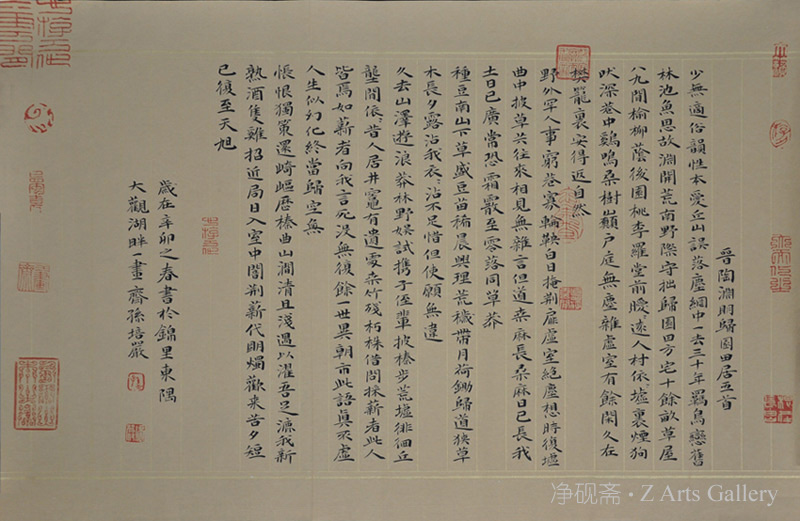 晉陶淵明歸園田居五首
少無適俗韻性本愛丘山誤落塵網中一去三十年羈鳥戀舊
林池魚思故淵開荒南野際守拙歸園田方宅十餘畝草屋
八九間榆柳蔭後園桃李羅堂前曖〻遠人村依〻墟裏煙狗
吠深巷中鷄鳴桑樹巔戶庭無塵雜虛室有餘閑久在
樊籠裏安得返自然
野外罕人事窮巷寡輪鞅白日掩荊扉虛室絕塵想時復墟
曲中披草共往來相見無雜言但道桑麻長桑麻日已長我
土日已廣常恐霜霰至零落同草莽
種豆南山下草盛豆苗稀晨興理荒穢帶月荷鋤歸道狹草
木長夕露沾我衣〻沾不足惜但使願無違
久去山澤遊浪莽林野娛試攜子侄輩披榛步荒墟徘徊丘
壟間依〻昔人居井竈有遺處桑竹殘朽株借問採薪者此人
皆焉如薪者向我言死沒無復餘一世異朝市此語真不虛
人生似幻化終當歸空無
悵恨獨策還崎嶇歷榛曲山澗清且淺遇以濯吾足漉我新
熟酒隻雞招近局日入室中闇荊薪代明燭歡來苦夕短
已復至天旭
歲在辛卯之春書於錦里東隅
大觀湖畔一畫齋孫培嚴
净砚斋・Z Arts Gallery